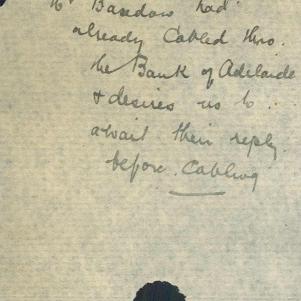 Mr Basedow had
already Cabled thro.
the Bank of Adelaide
& desires us to
await their reply
before Cabling